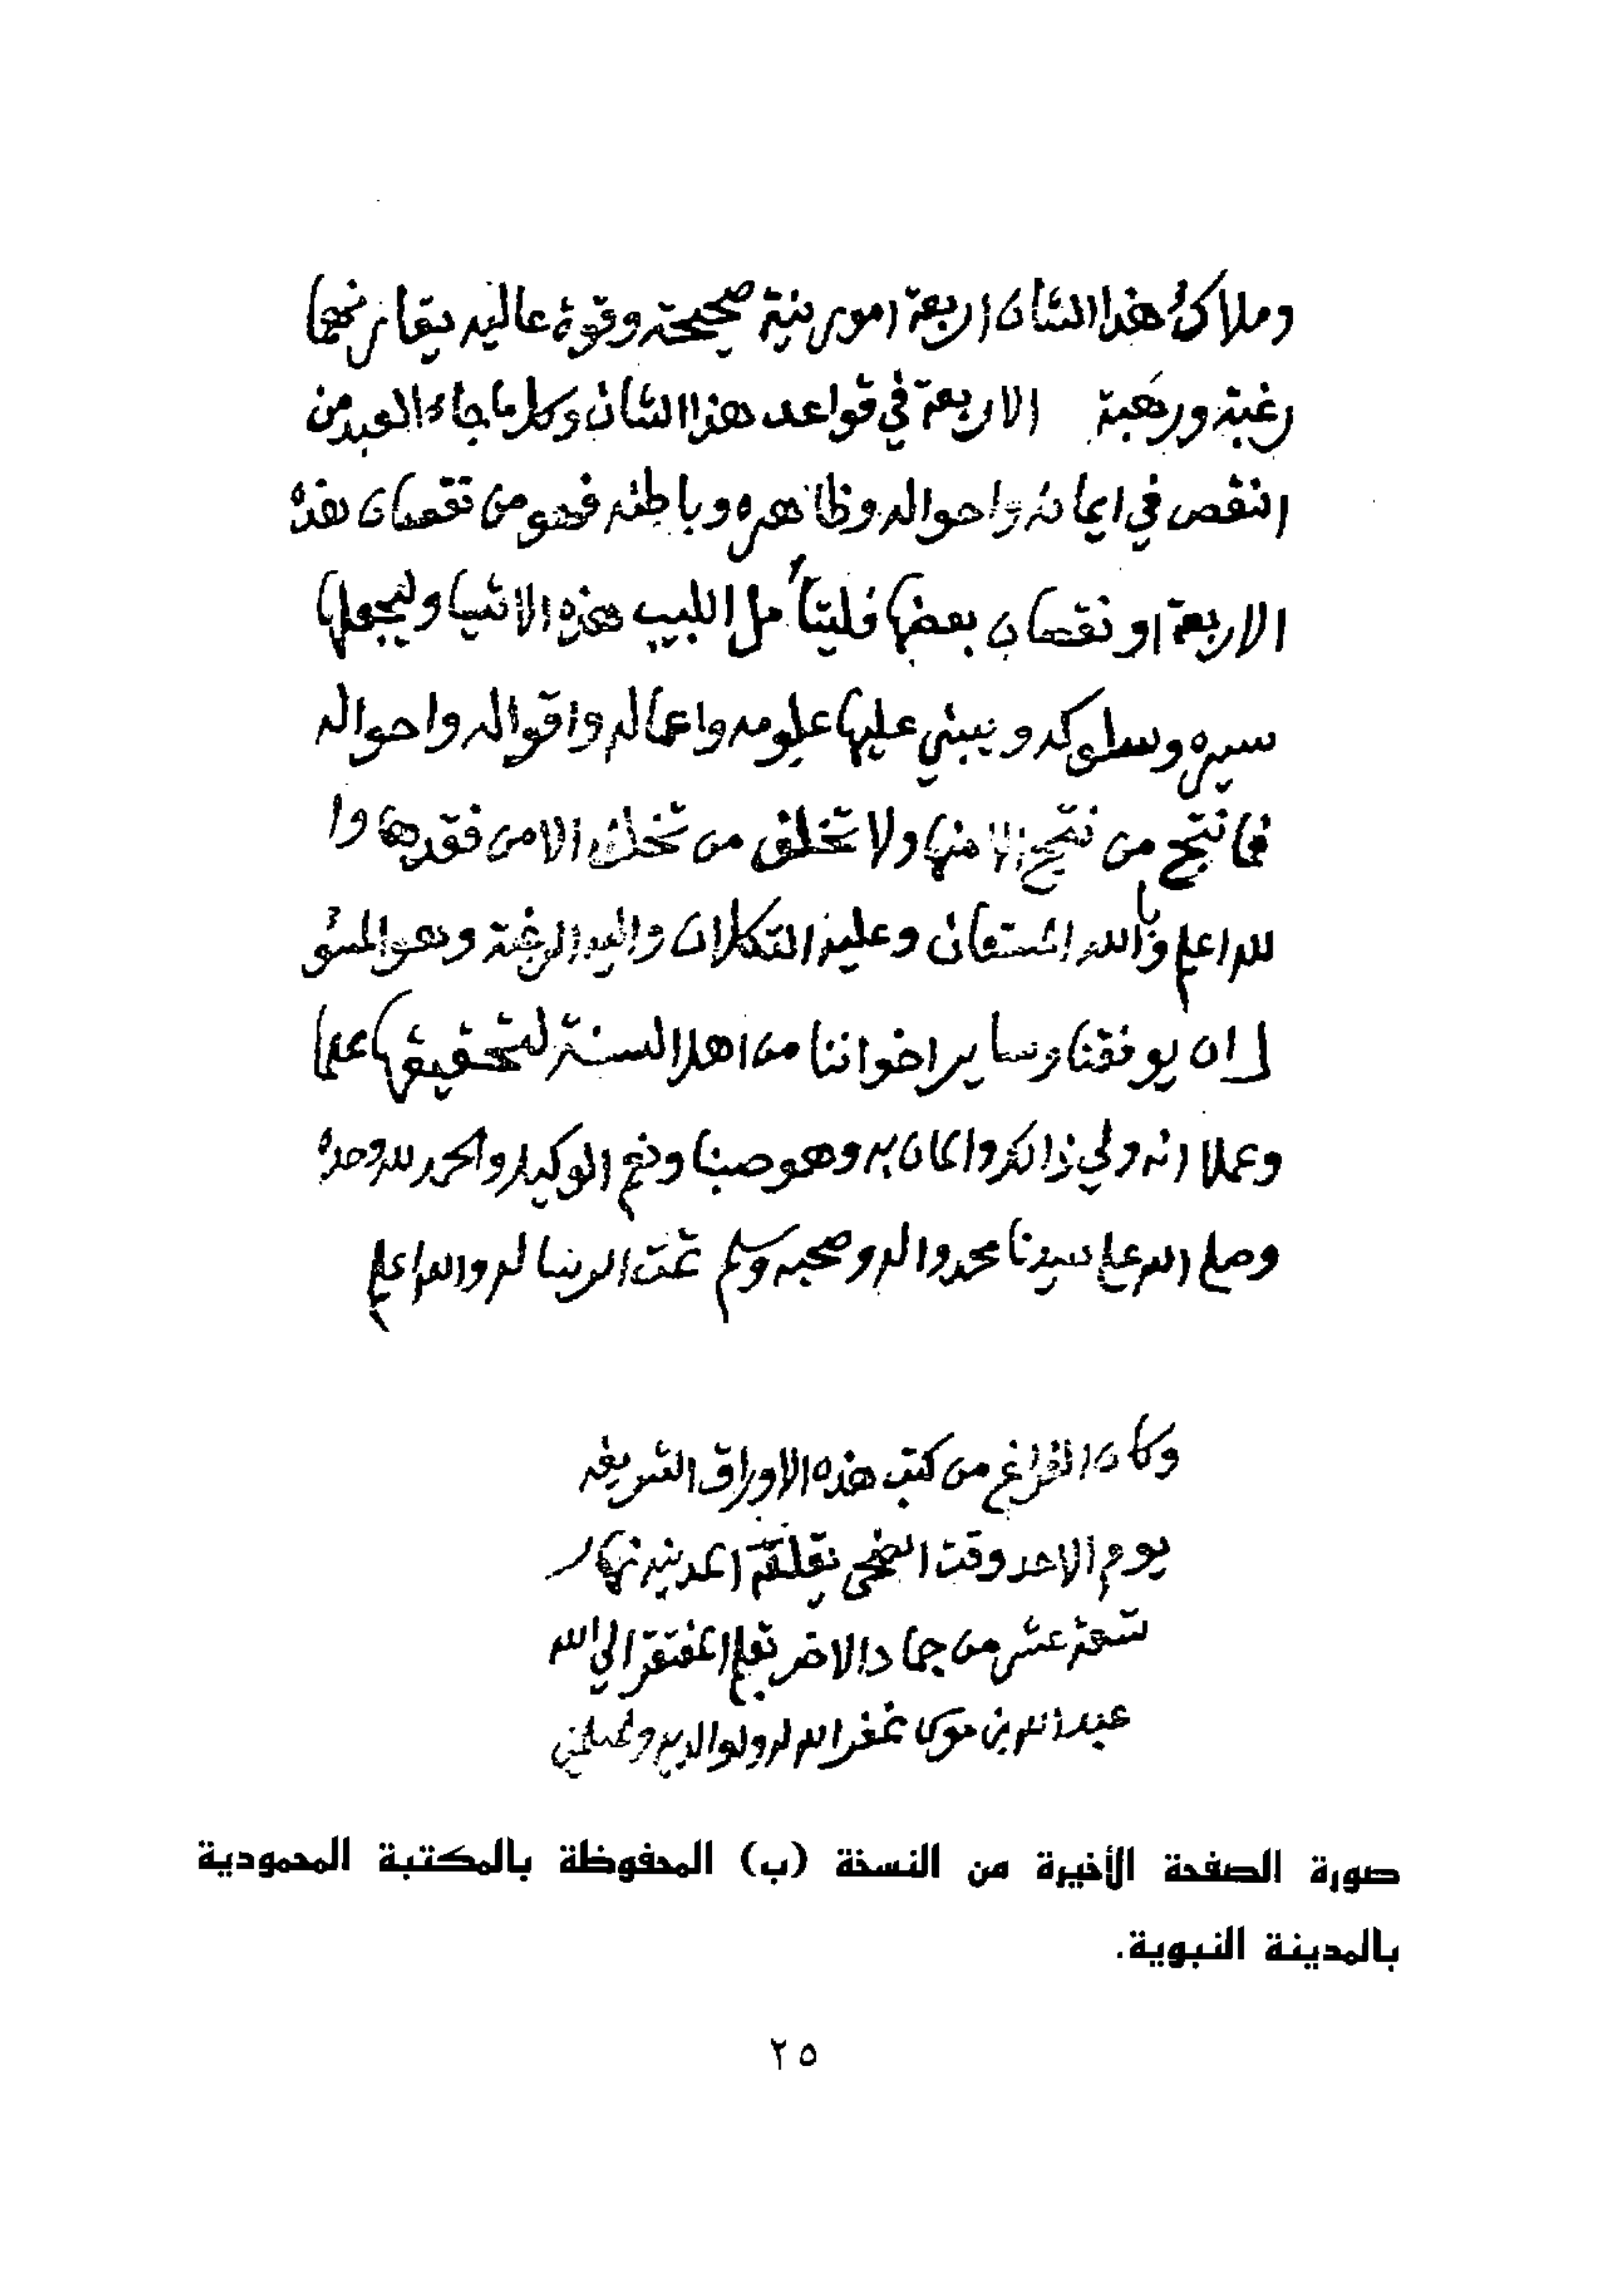 وملاك هذا الشان اربعة امور نية صحيحة وقوة عاليه يقارنهما
رغبة ورهبة الاربعة في قواعد هذا الشان وكل ما جاء العبد من
النقص في ايمانه واحواله وظاهره وباطنه فهو من نقصان هذه
الاربعة او نقصان بعضها فليتأمل اللبيب هذه الاشيا وليجعلها
سيره وسلوكه ويبني عليها علومه واعماله واقواله واحواله
فما نتج من نتج الا منها ولا تخلف من تخلف الا من فقدها وا
لله اعلم وبالله المستعان وعليه التكلان واليه الرغبة وهو المسؤ
ل ان يوفقنا وساير اخواننا من اهل السنة لتحقيقها علما
وعملا انه ولي ذالك والمان به وهو حسبنا ونعم الوكيل والحمد لله وحده
وصلى الله على سيدنا محمد واله وصحبه وسلم تمت الرسالة والله اعلم
وكان الفراغ من كتب هذه الاوراق الشريفه
يوم الاحد وقت الضحى المدينه نهار
تسعة عشر من جماد الاخر بقلم المفتقر الى الله
عبد الله بن موسى غفر الله له ولوالديه
صورة الصفحة الأخيرة من النسخة (ب) المحفوظة بالمكتبة المحمودية
بالمدينة النبوية.
٢٥